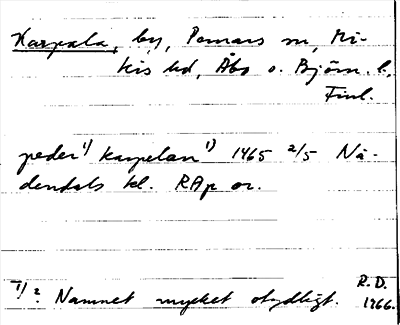 Karpala, by, Pomars sn, Vi-
kis hd, Åbo o. Björn. l.,
Finl.
peder 1) karpelan 1) 1465 2/5 Nå-
dendals kl. RAp or.
1) ? Namnet mycket otydligt. R.D.
1966.